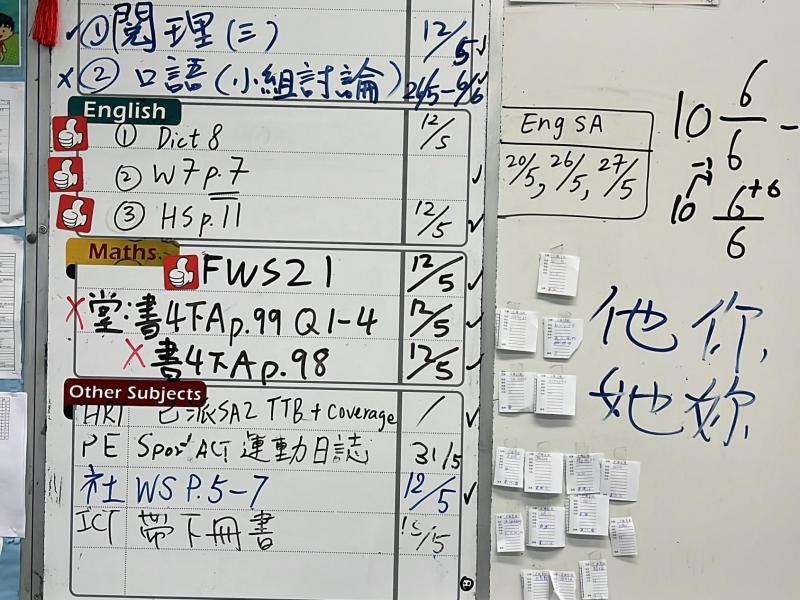 ① 閱理(三) 12/5
② 口語(小組討論) 26/5-6/6
English
① Dict 8 12/5
② W7 p.7
③ HS p.11 12/5
Maths
FWS21 12/5
堂:書4下A p.99 Q1-4 12/5
書4下A p.98 12/5
Other Subjects
HRT 已派SA2 TTB + Coverage /
PE Sport ACT 運動日誌 31/5
社 WS P.5-7 12/5
ICT 帶下冊書
Eng SA
20/5, 26/5, 27/5
10 6/6 -
-1
10 6+6/6
他 你,
她 妳